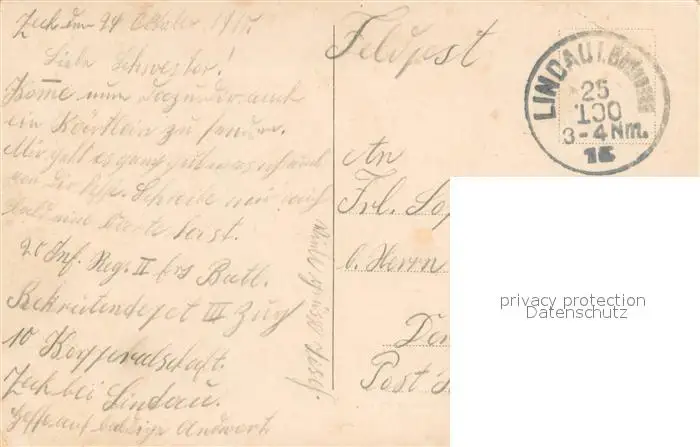 Zech den 24 Oktober 1915.
Liebe Schwester!
Komme nun dazu dir auch
ein Kärtlein zu senden.
Mir geht es ganz gut was ich auch
von Dir hoffe. Schreibe mir
bald eine Karte
20 Inf. Reg. II Ers Batl.
Rekrutendepot III Zug
10 Korporalschaft.
Zech bei Lindau.
Hoffe auf baldige Andwort
Viele Grüsse Josef.
Feldpost
LINDAU I. BODENSEE
25
3-4 Nm.
15
An
Frl.
b. Herrn
Post
privacy protection
Datenschutz